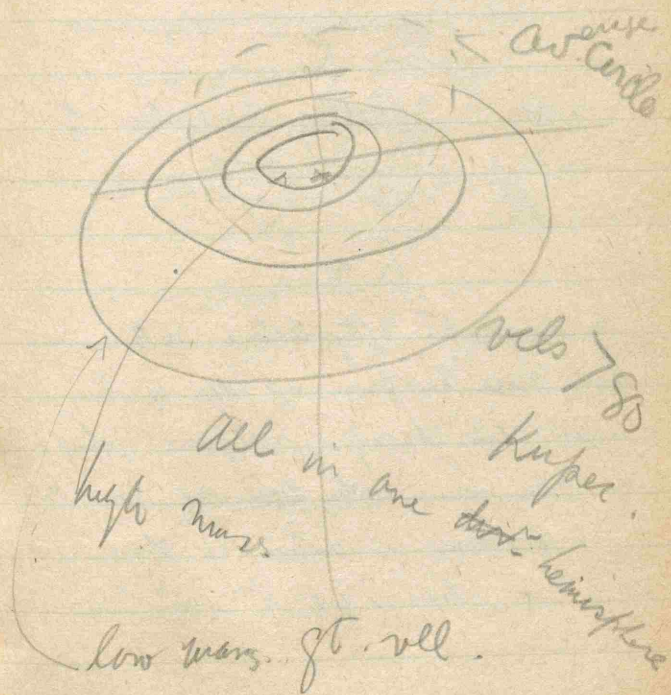 average
Circle
vels > 80
Kuper.
All in one hemisphere
high mass
low mass gt. vel.